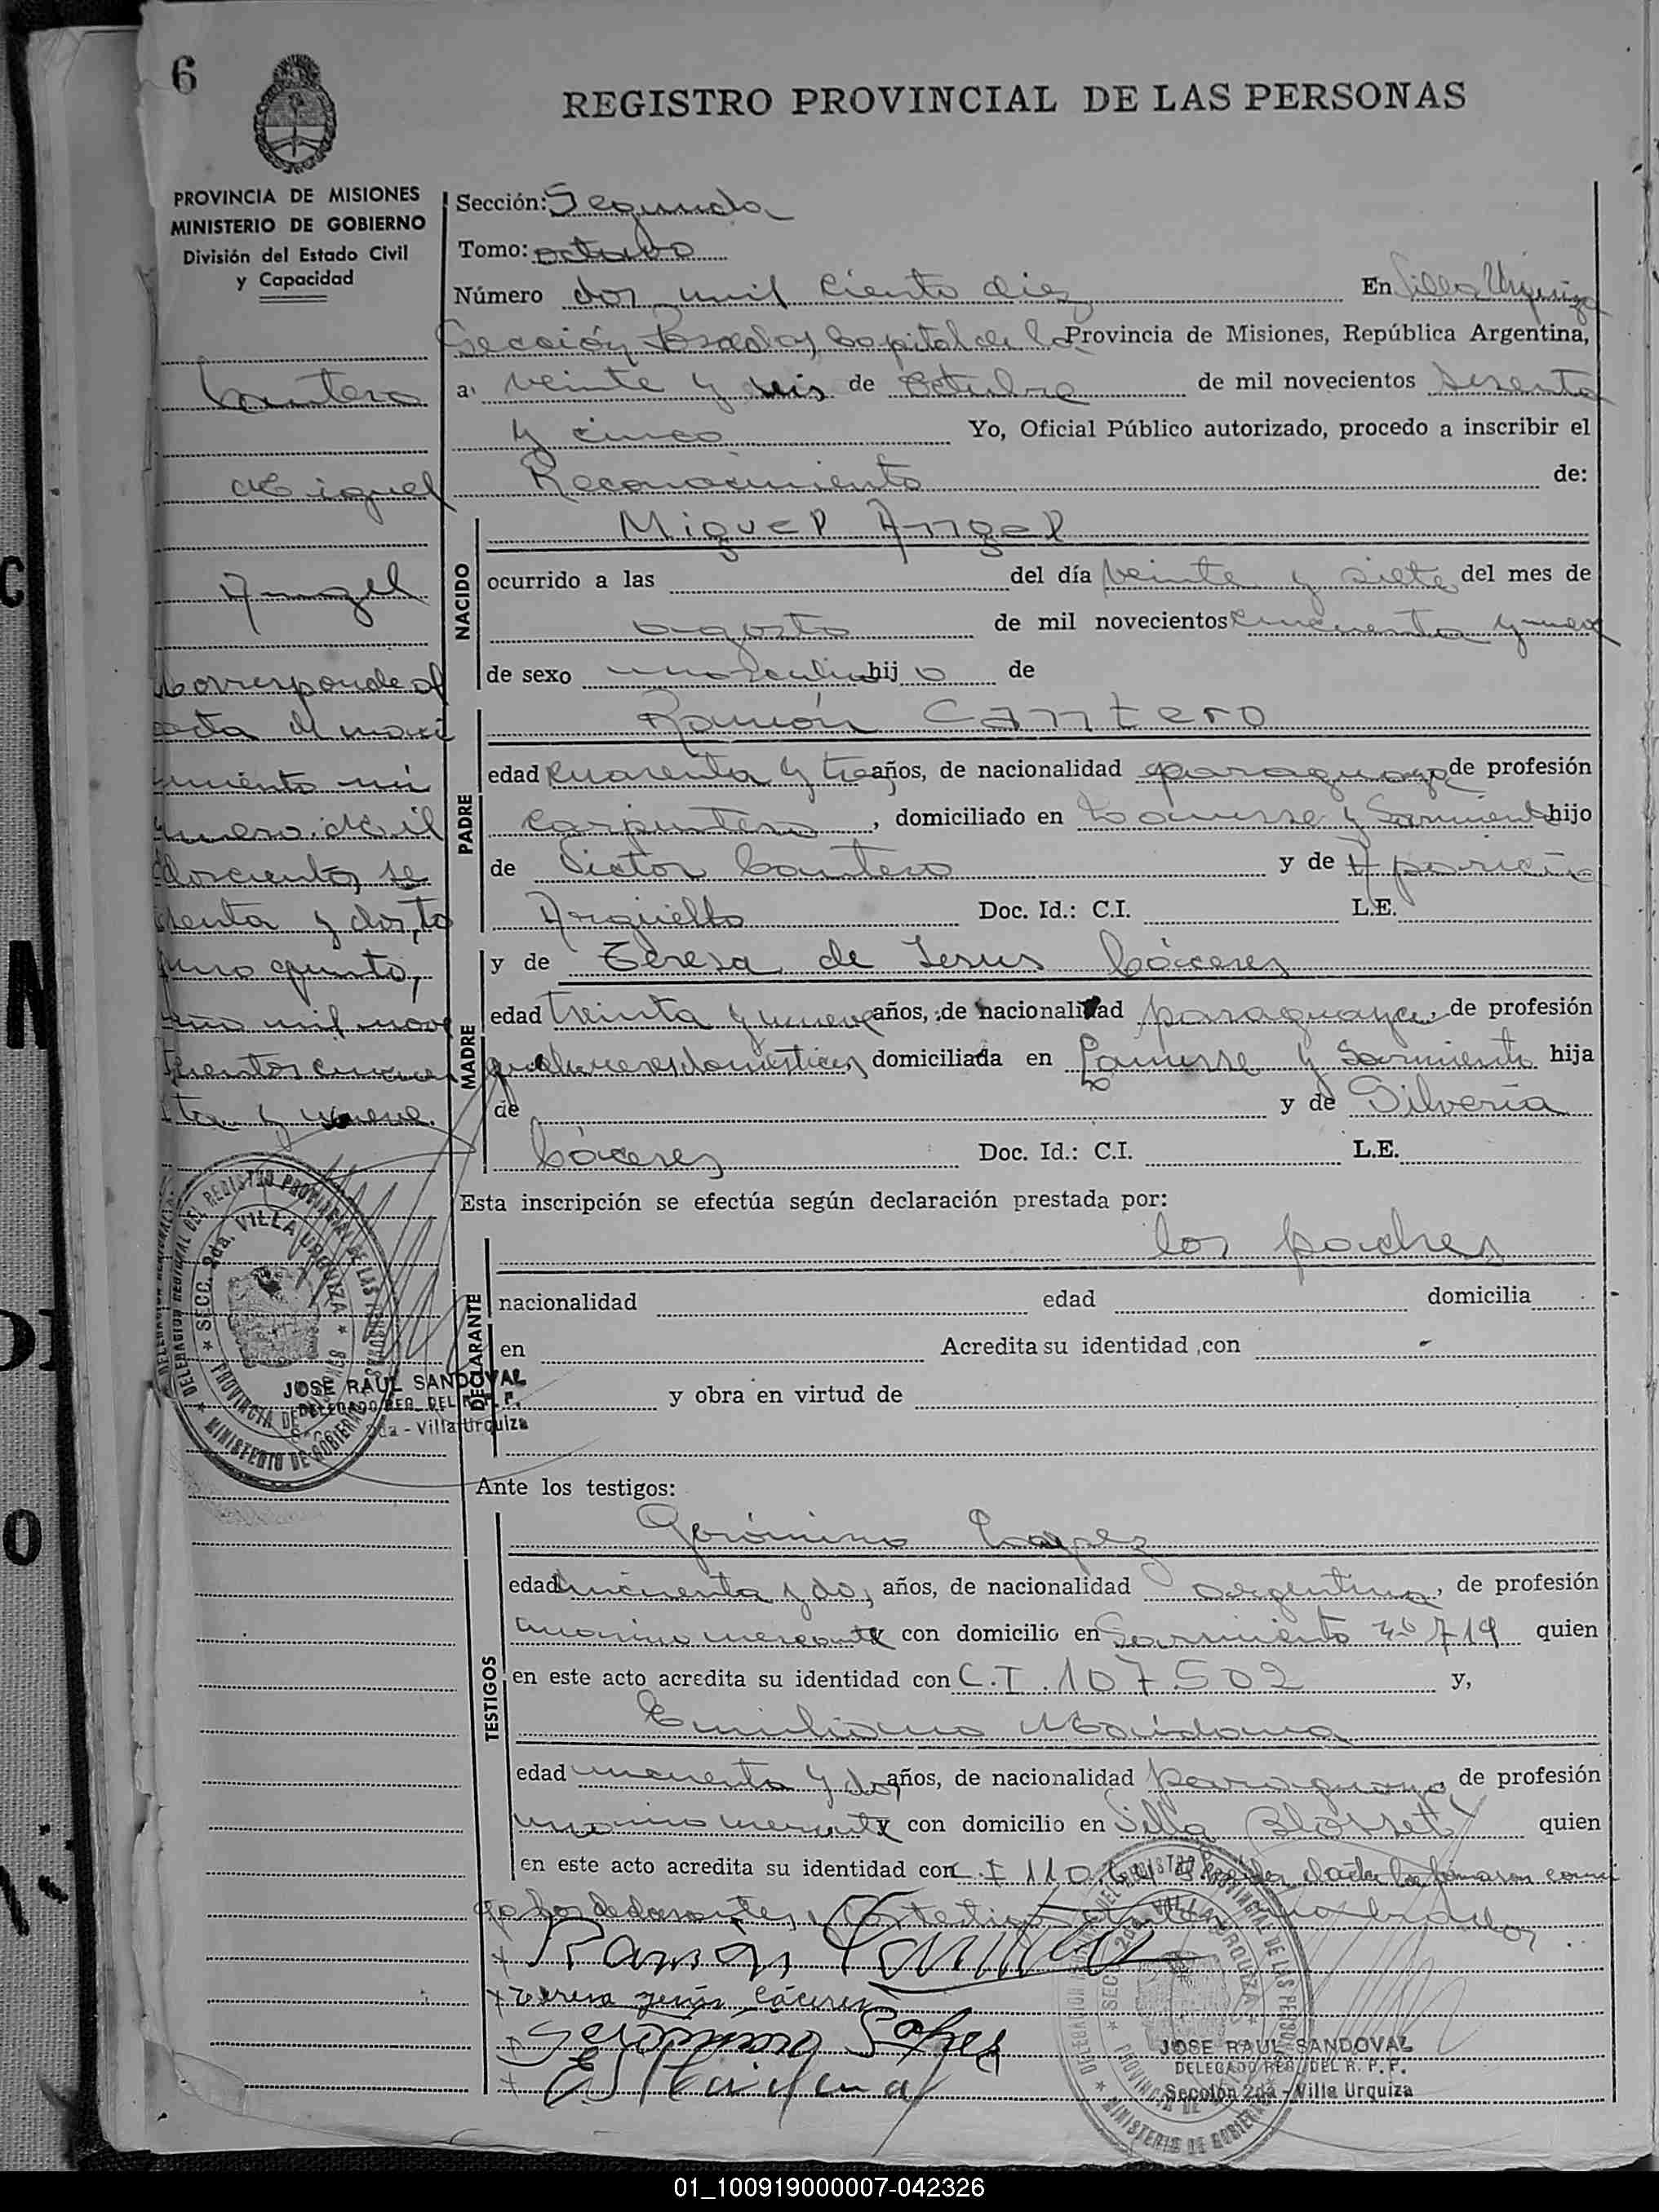 6
REGISTRO PROVINCIAL DE LAS PERSONAS
PROVINCIA DE MISIONES
MINISTERIO DE GOBIERNO
División del Estado Civil
y Capacidad
Cantero
Miguel
Angel
Corresponde al
acta de naci
miento nú
mero: Mil
doscientos se
senta y dos, to
mo quinto,
año mil nove
cientos cincuen
ta y nueve.
Sección: Segunda
Tomo: octavo
Número dos mil ciento diez En Villa Urquiza
Sección Posadas Capital de la Provincia de Misiones, República Argentina,
a veinte y seis de Octubre de mil novecientos sesenta
y cinco Yo, Oficial Público autorizado, procedo a inscribir el
Reconocimiento de:
NACIDO
Miguel Angel
ocurrido a las del día veinte y siete del mes de
agosto de mil novecientos cincuenta y nueve
de sexo masculino hijo de
PADRE
Ramón Cantero
edad cuarenta y tres años, de nacionalidad paraguaya de profesión
carpintero, domiciliado en Lanusse y Sarmiento hijo
de Victor Cantero y de Aparicia
Argüello Doc. Id.: C.I. L.E.
MADRE
y de Teresa de Jesus Cáceres
edad treinta y nueve años, de nacionalidad paraguaya, de profesión
quehaceres domésticos domiciliada en Lanusse y Sarmiento hija
de y de Silveria
Cáceres Doc. Id.: C.I. L.E.
Esta inscripción se efectúa según declaración prestada por:
DECLARANTE
los padres
nacionalidad edad domicilia
en Acredita su identidad ,con
y obra en virtud de
Ante los testigos:
TESTIGOS
Gerónimo Lopez
edad cincuenta y dos años, de nacionalidad argentina, de profesión
marino mercante con domicilio en Sarmiento Nº 719 quien
en este acto acredita su identidad con C.I. 107502 y,
Emiliano Maidana
edad cincuenta y dos años, de nacionalidad paraguaya de profesión
marino mercante con domicilio en Villa Blosset quien
en este acto acredita su identidad con C.I 110 Leída el acta la firmaron conmi
go los declarantes, y los testigos
Ramón Cantero
Teresa Jesús Cáceres
Gerónimo Lopez
E Maidana
DELEGACION REGIONAL DEL REGISTRO PROVINCIAL DE LAS PERSONAS
SECC. 2da. VILLA URQUIZA
PROVINCIA DE MISIONES
MINISTERIO DE GOBIERNO
JOSE RAUL SANDOVAL
DELEGADO REG. DEL R. P. P.
Sección 2da - Villa Urquiza
DELEGACION REGIONAL DEL REGISTRO PROVINCIAL DE LAS PERSONAS
SECC. 2da. VILLA URQUIZA
PROVINCIA DE MISIONES
MINISTERIO DE GOBIERNO
JOSE RAUL SANDOVAL
DELEGADO REG. DEL R. P. P.
Sección 2da - Villa Urquiza
01_100919000007-042326